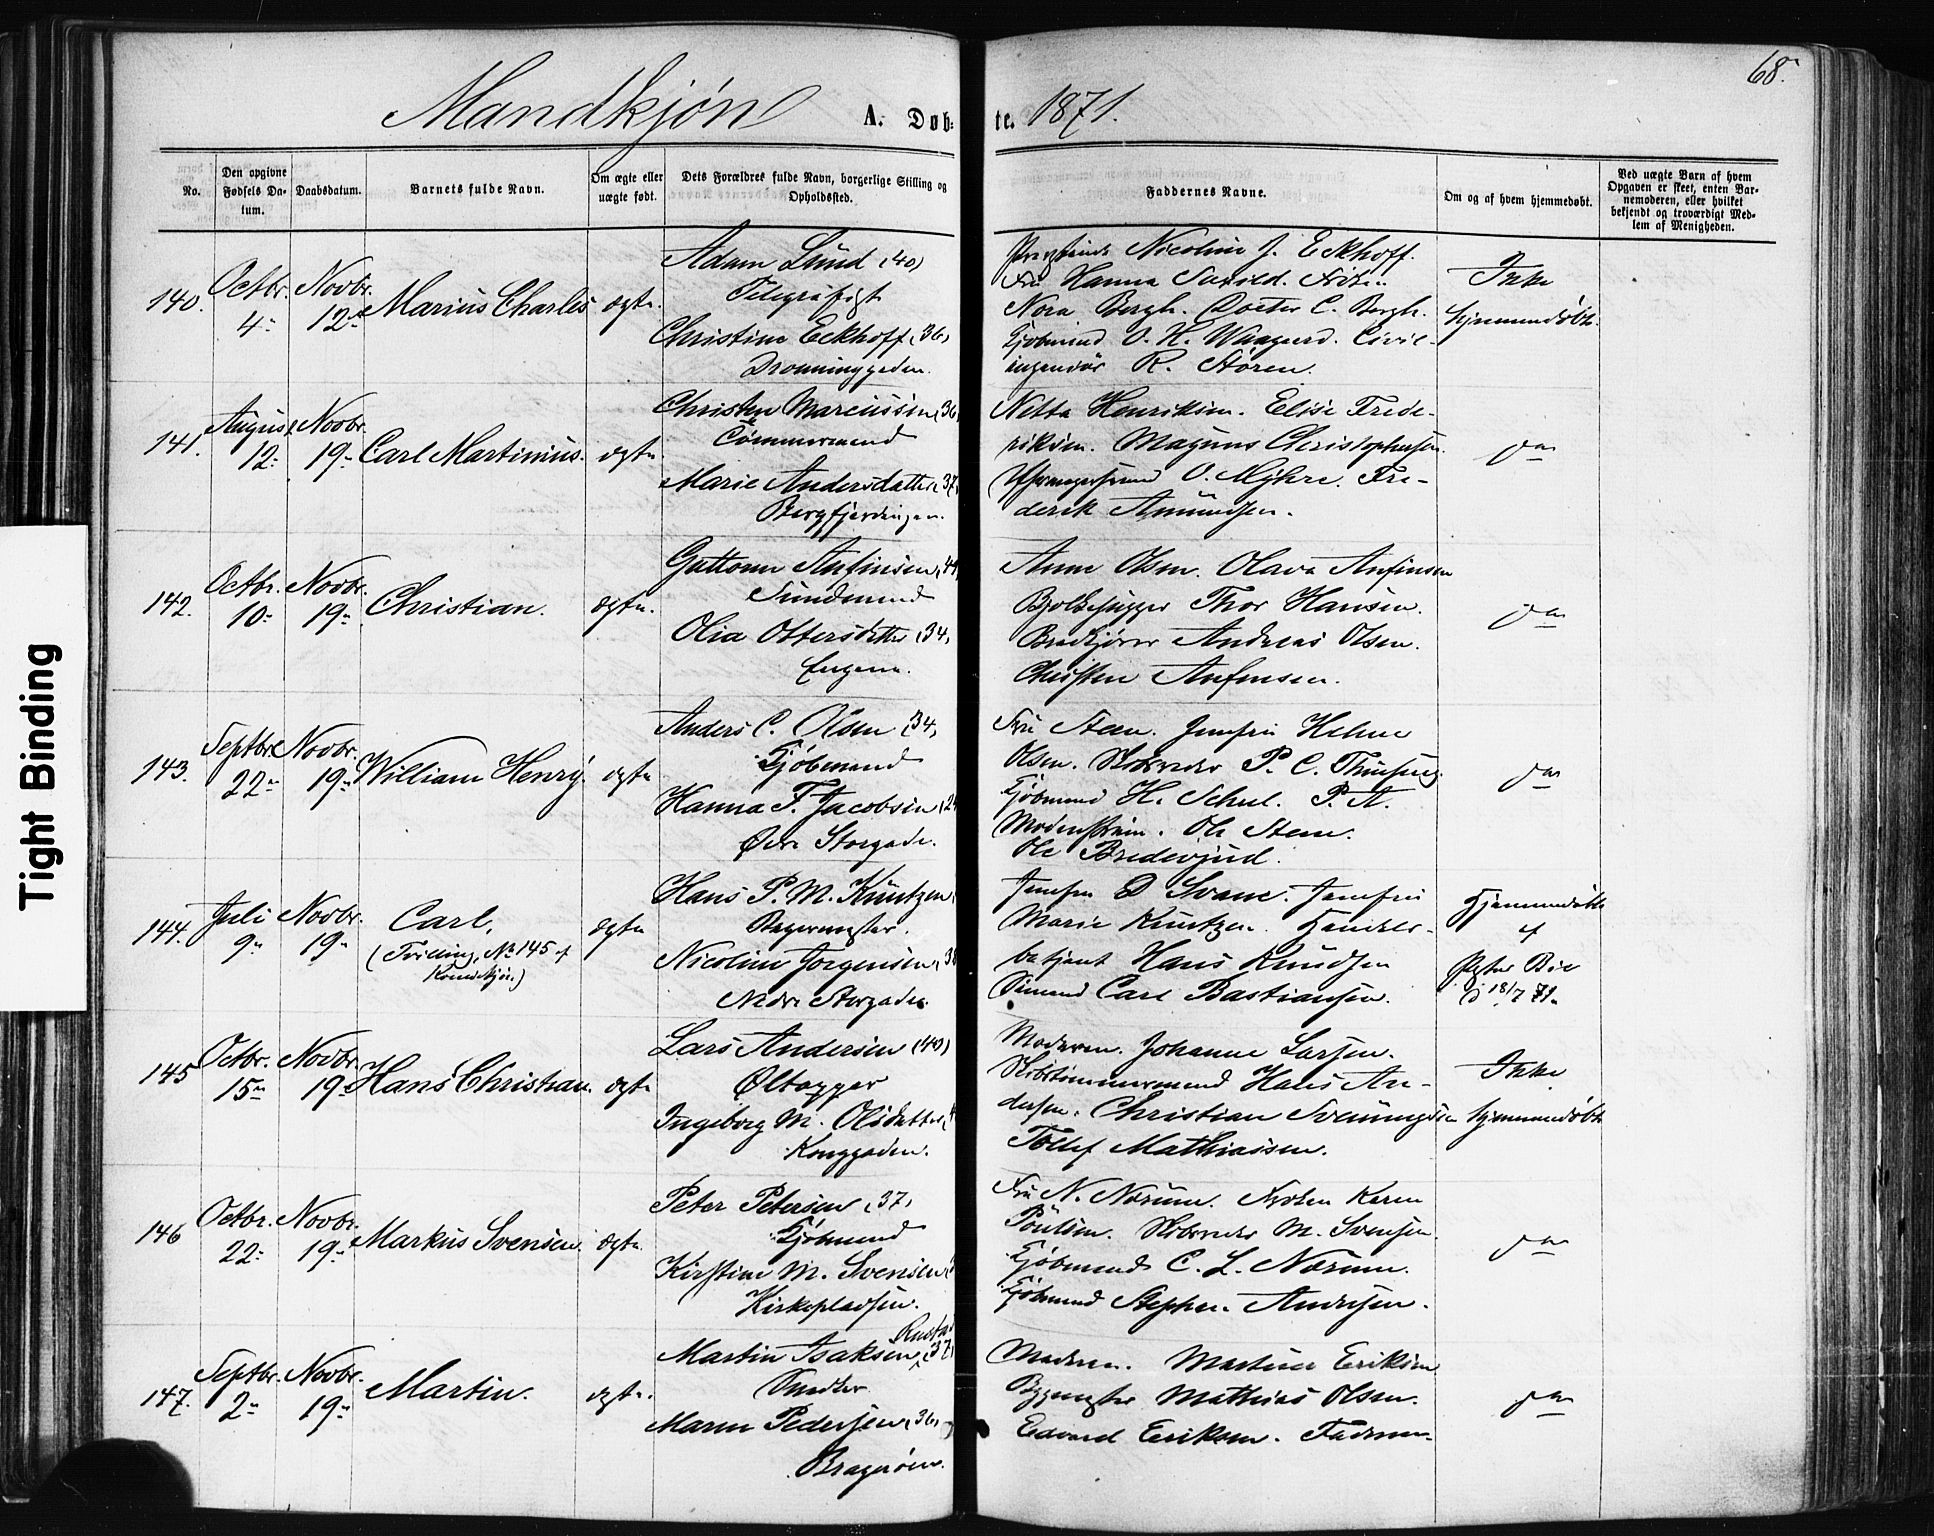 68.
Mandkjøn A. Døb-te. 1871.
No.
Den opgivne Fødsels Da-tum.
Daabsdatum.
Barnets fulde Navn.
Om ægte eller uægte født.
Dets Forældres fulde Navn, borgerlige Stilling og Opholdssted.
Faddernes Navne.
Om og af hvem hjemmedøbt.
Ved uægte Barn af hvem Opgaven er skeet, enten Bar-nemoderen, eller hvilket bekjendt og troværdigt Med-lem af Menigheden.
140.
Octbr. 4
Novbr. 12
Marius Charles
ægte
Adam Lund (40)
Telegrafist
Christine Eckhoff (36)
Dronninggaden.
Nicoline J. Eckhoff.
Fru Hanna
Nora Borgh. Doctor C. Borgh.
Kjøbmand O. H. Civil-
ingeniør R. Støren.
Ikke
hjemmedøbt.
141.
August 12
Novbr. 19
Carl Martinius.
ægte
Christen Marcussen (36
Tømmermand
Marie Andersdatter (37)
Bergfjerdingen.
Netta Henriksen. Elise Frede-
riksen. Magnus Christophersen.
O. Myhre. Fre-
derik Amundsen.
do
142.
Octbr. 10
Novbr. 19
Christian.
ægte.
Guttorm Anfinsen (44
Olia Ottersdatter (34)
Engene.
Anne Olsen. Olava Anfinsen
Thor Hansen.
Andreas Olsen.
Christen Anfinsen.
do
143.
Septbr. 22
Novbr. 19
William Henry
ægte
Anders C. Olsen (34)
Kjøbmand
Hanna F. Jacobsen (24
Øvre Storgade.
Fru Steen. Jomfru Helene
Olsen. Skibsreder P. C.
Kjøbmand H. P. A.
Ole Steen.
Ole
do
144.
Juli 9
Novbr. 19
Carl,
(Tvilling, No 145 af
Kvindekjøn.)
ægte
Hans P. M. Kuntzen
Bagermester.
Nicoline Jørgensen (38
Nedre Storgade.
Jomfru D Svane. Jomfru
Marie Kuntzen. Handels-
betjent Hans Knudsen
Sømand Carl Bastiansen.
Hjemmedøbt
af
Pastor Bie
d. 18/7 71.
145
Octbr. 15
Novbr. 19
Hans Christian.
ægte
Lars Andersen (40)
Øltapper
Ingeborg M. Olsdatter
Konggaden.
Moderen. Johanne Larsen.
Skibstømmermand Hans An-
dersen. Christian Svenningsen
Tollef Mathiassen.
Ikke
hjemmedøbt
146
Octbr. 22
Novbr. 19
Markus Svensen.
ægte
Peter Petersen (37)
Kjøbmand
Kirstine M. Svensen
Kirkepladsen.
Fru N. Frøken Karen
Poulsen. Skibsreder M. Svensen.
Kjøbmand C. L.
Kjøbmand Stephan Andersen.
do
147.
Septbr. 2
Novbr. 19
Martin.
ægte.
Martin Isaksen (37)
Smeder.
Maren Pedersen (36)
Bragerøen.
Moderen. Eriksen
Bygmester Mathias Olsen.
Edvard Eriksen. Faderen
do
Tight Binding